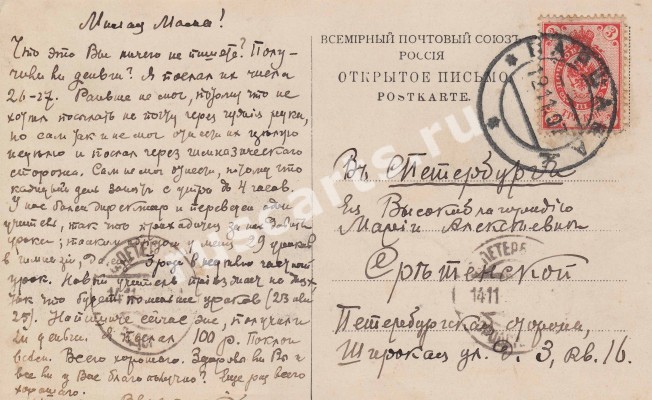 Милая Маша!
Что это Вы ничего не пишете? Полу-
чили ли деньги? Я послал их числа
26-27. Раньше не мог, потому что не
хотел посылать на почту через чужія руки,
но сам так и не мог отнести их целую
неделю и послал через гимназического
сторожа. Сам не мог отнести, потому что
каждый день занят с утра до 4 часов.
У нас болен директор и переведен один
учитель, так что приходится за них давать
уроки;
в гимназіи, да
урок. Новый учитель
так что будет поменьше уроков (23 или
25). Напишите сейчас же, получили
ли деньги. Я послал 100 р. Поклон
всем. Всего хорошаго. Здоровы ли Вы и
все ли у Вас благополучно? Еще раз всего
хорошаго.
ВСЕМІРНЫЙ ПОЧТОВЫЙ СОЮЗЪ.
РОССІЯ
ОТКРЫТОЕ ПИСЬМО
POSTKARTE.
3
ВАРШАВА
12.11.07
Въ С.Петербургъ
Ея Высокоблагородію
Маріи Алексѣевнѣ
Срѣтенской
Петербургская сторона,
Широкая ул. д. 3, кв. 16.
С.ПЕТЕРБ
1411
ПЕТЕРБ
1411
rossarts.ru